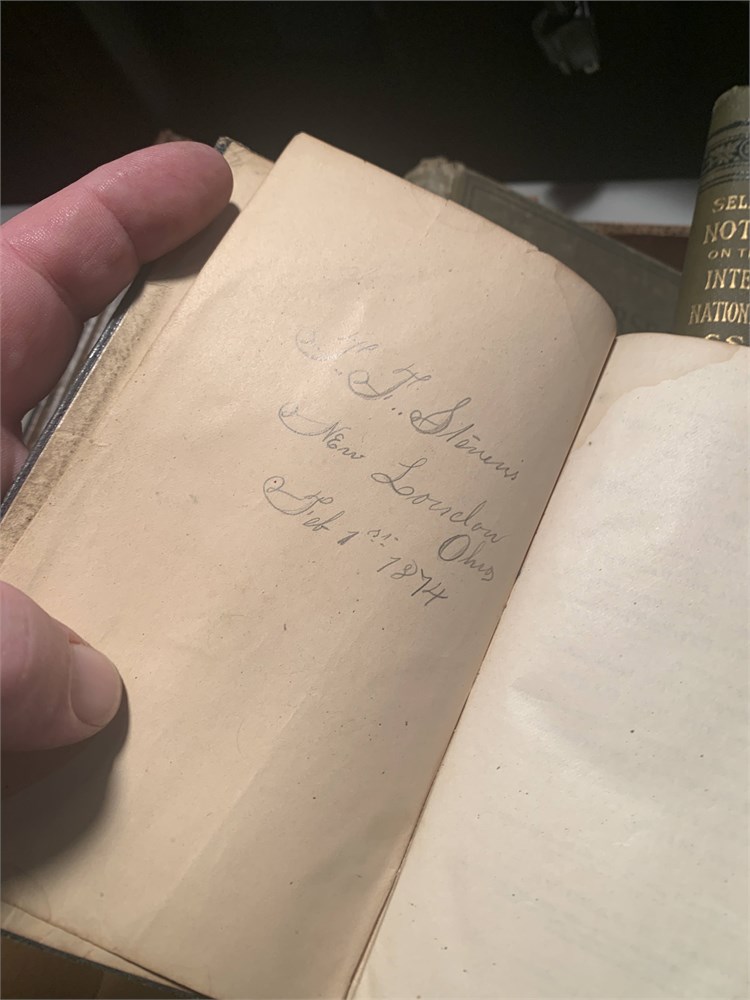 T. Stevens
New London
Ohio
Feb 1st 1874
SEL
NOT
ON T
INTE
NATION